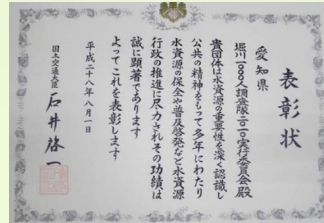 表彰状
愛知県
堀川1000人調査隊二〇一〇実行委員会殿
貴団体は水資源の重要性を深く認識し
公共の精神をもって多年にわたり
水資源の保全や普及啓発など水資源
行政の推進に尽力されその功績は
誠に顕著であります
よってこれを表彰します
平成二十八年八月一日
国土交通大臣 石井啓一